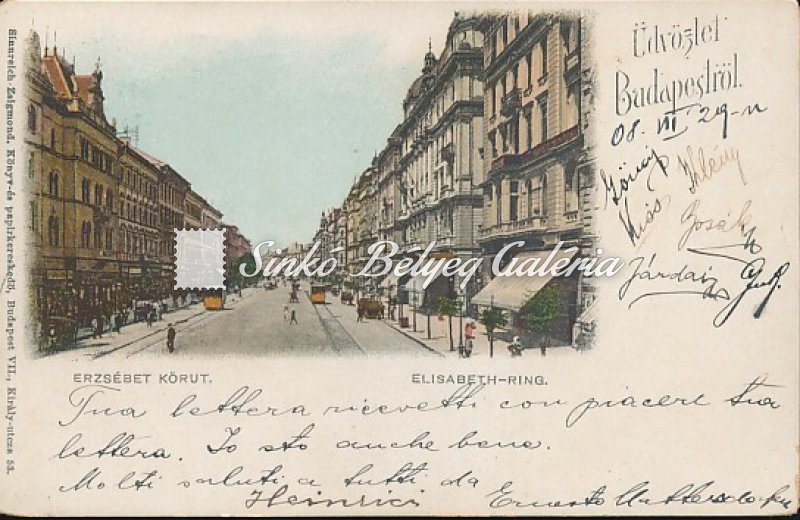 Üdvözlet
Budapestről.
08. VII 29-n
Kiss
Járdai
Sinkó Bélyeg Galéria
ERZSÉBET KÖRUT.
ELISABETH-RING.
Sinnreich Zsigmond, Könyv-és papirkereskedő, Budapest VII., Király-utcza 53.
Tua lettera ricevetti con piacere tua
lettera. Io sto anche bene.
Molti saluti a tutti da
Heinrici Ernesto